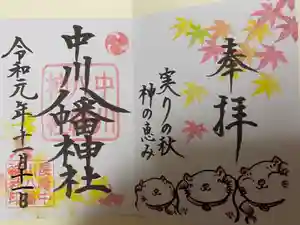 奉拝
実りの秋
神の恵み
中川八幡神社
令和元年十一月十一日